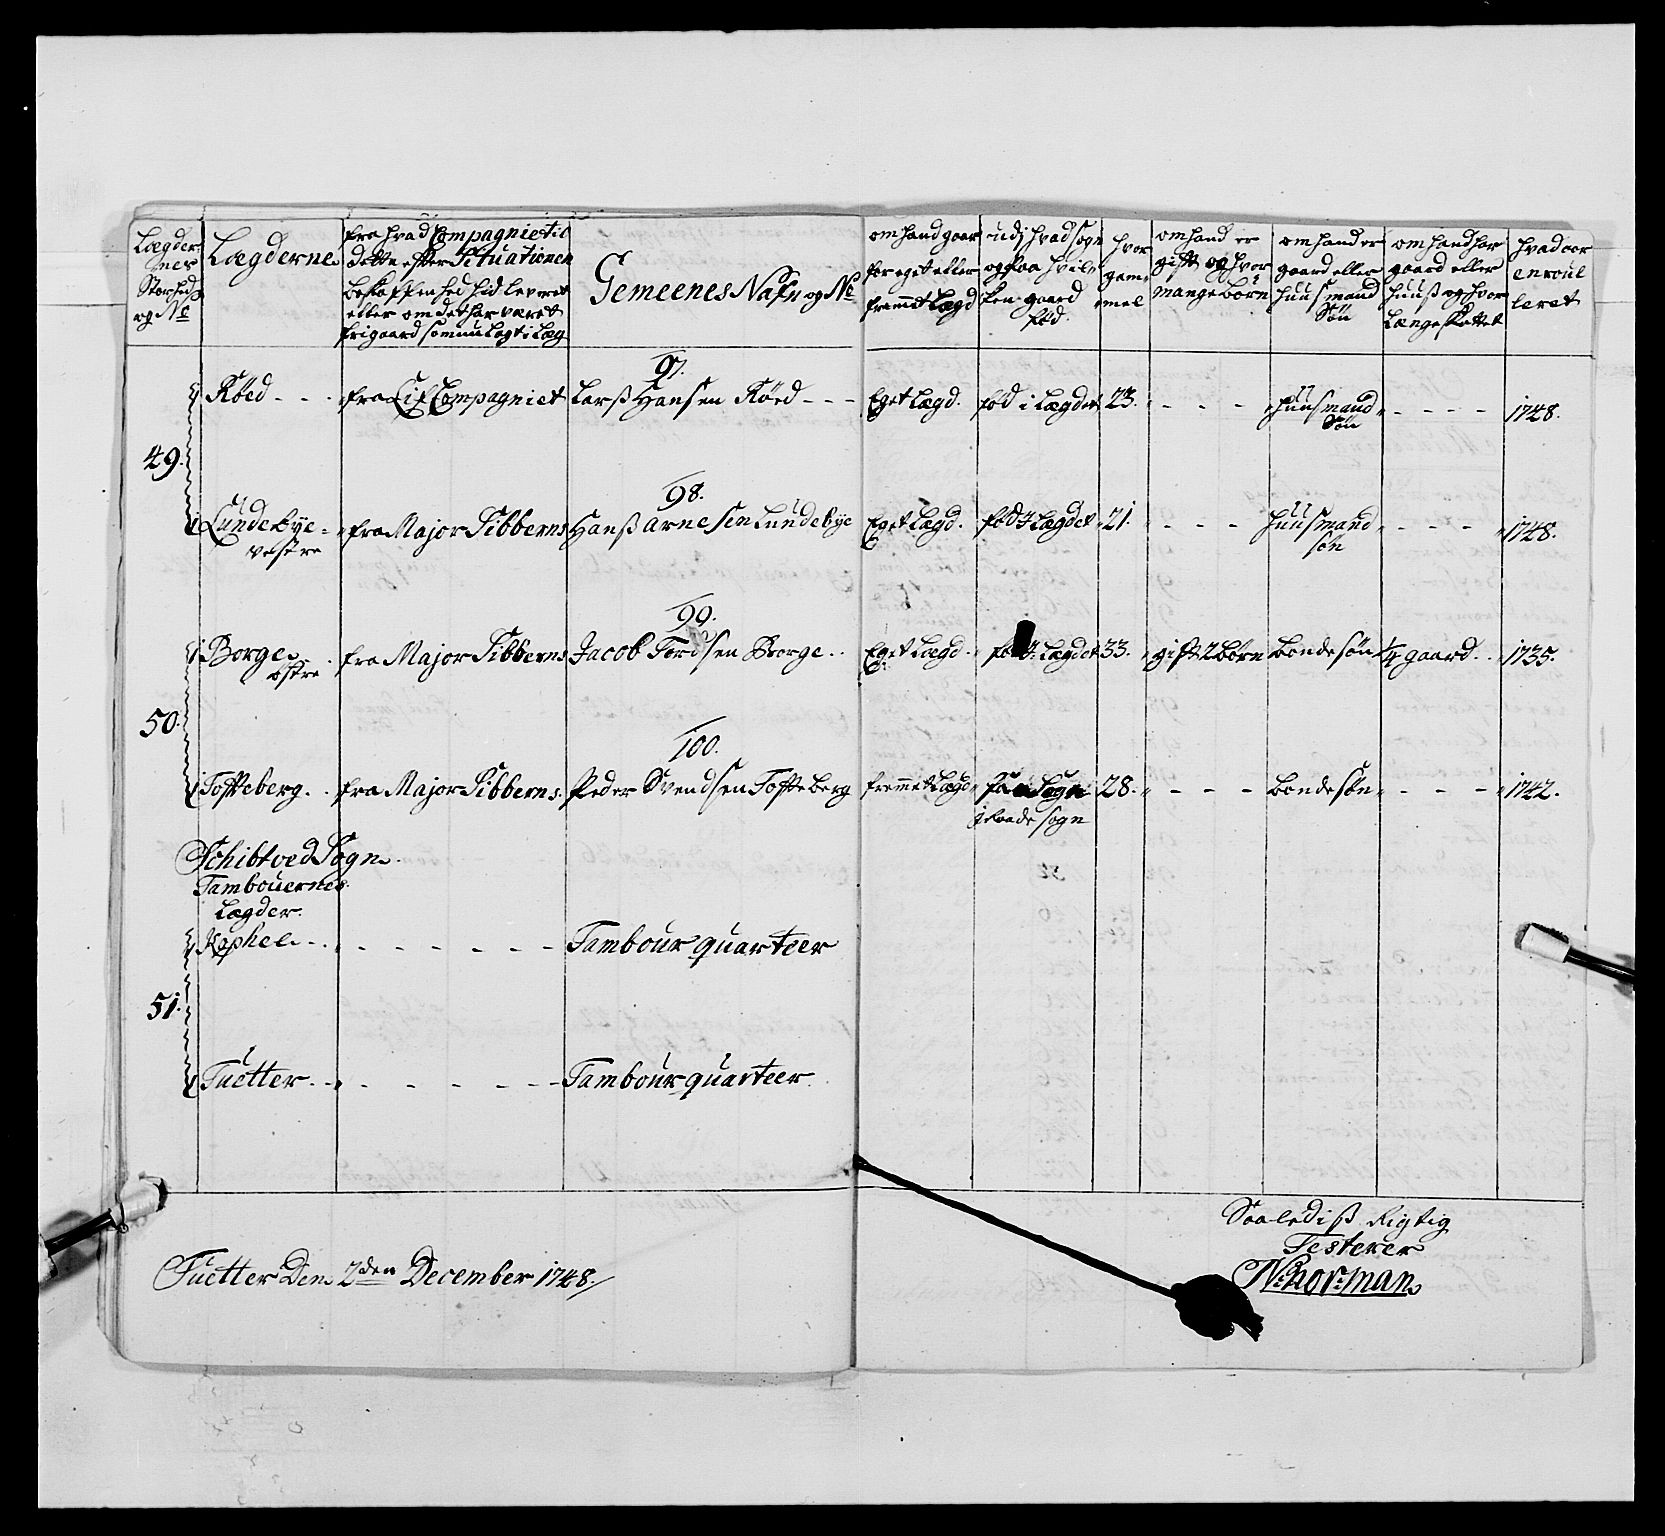 Lægder
nes
Storhed
og No
Lægderne
fra hvad Compagnie til
dette efter Situationen
beskaffenhed hid leveret
eller om det har været
frigaard som nu lagt i Læg
Gemeenes Nafn og No
om hand gaar
for eget eller
fremmet Lægd
udj hvad sogn
og paa hvil
ken gaard
fød.
hvor
gam
mel
om hand er
gift og hvor
mange børn
om hand er
gaard eller
huusmand
Søn
om hand har
gaard eller
huuss og hvor
Længe skattet
hvad aar
enroul
leret
97.
Røed - - - fra Lif Compagniet Larss Hansen Røed - - - Eget Lægd. fød i Lægdet 23. - - - huusmand - - - - 1748.
Søn
49.
98.
Lundebye - fra Major Sibberns Hanss Arnesen Lundebye Eget Lægd. fød i Lægdet 21. - - - huusmand - - - 1748.
vestre
søn
99.
Borge fra Major Sibberns Jacob Tordsen Borge Eget Lægd. fød i Lægdet 33. gift 2 børn bondesøn 1/4 gaard 1735.
østre
50.
100.
Tofteberg. fra Major Sibberns. Peder Svendsen Tofteberg fremmet Lægd Sogn 28. - - - bondesøn - - - 1742.
i Raade sogn
Schibtved Sogn
Tambouernes
Lægder.
Kaphel - - - - - - - - Tambour quarteer
51.
Tuetter - - - - - - - - Tambour quarteer
Saalediss Rigtig
Testerer
Tuetter Den 2den December 1748./
N: Norman